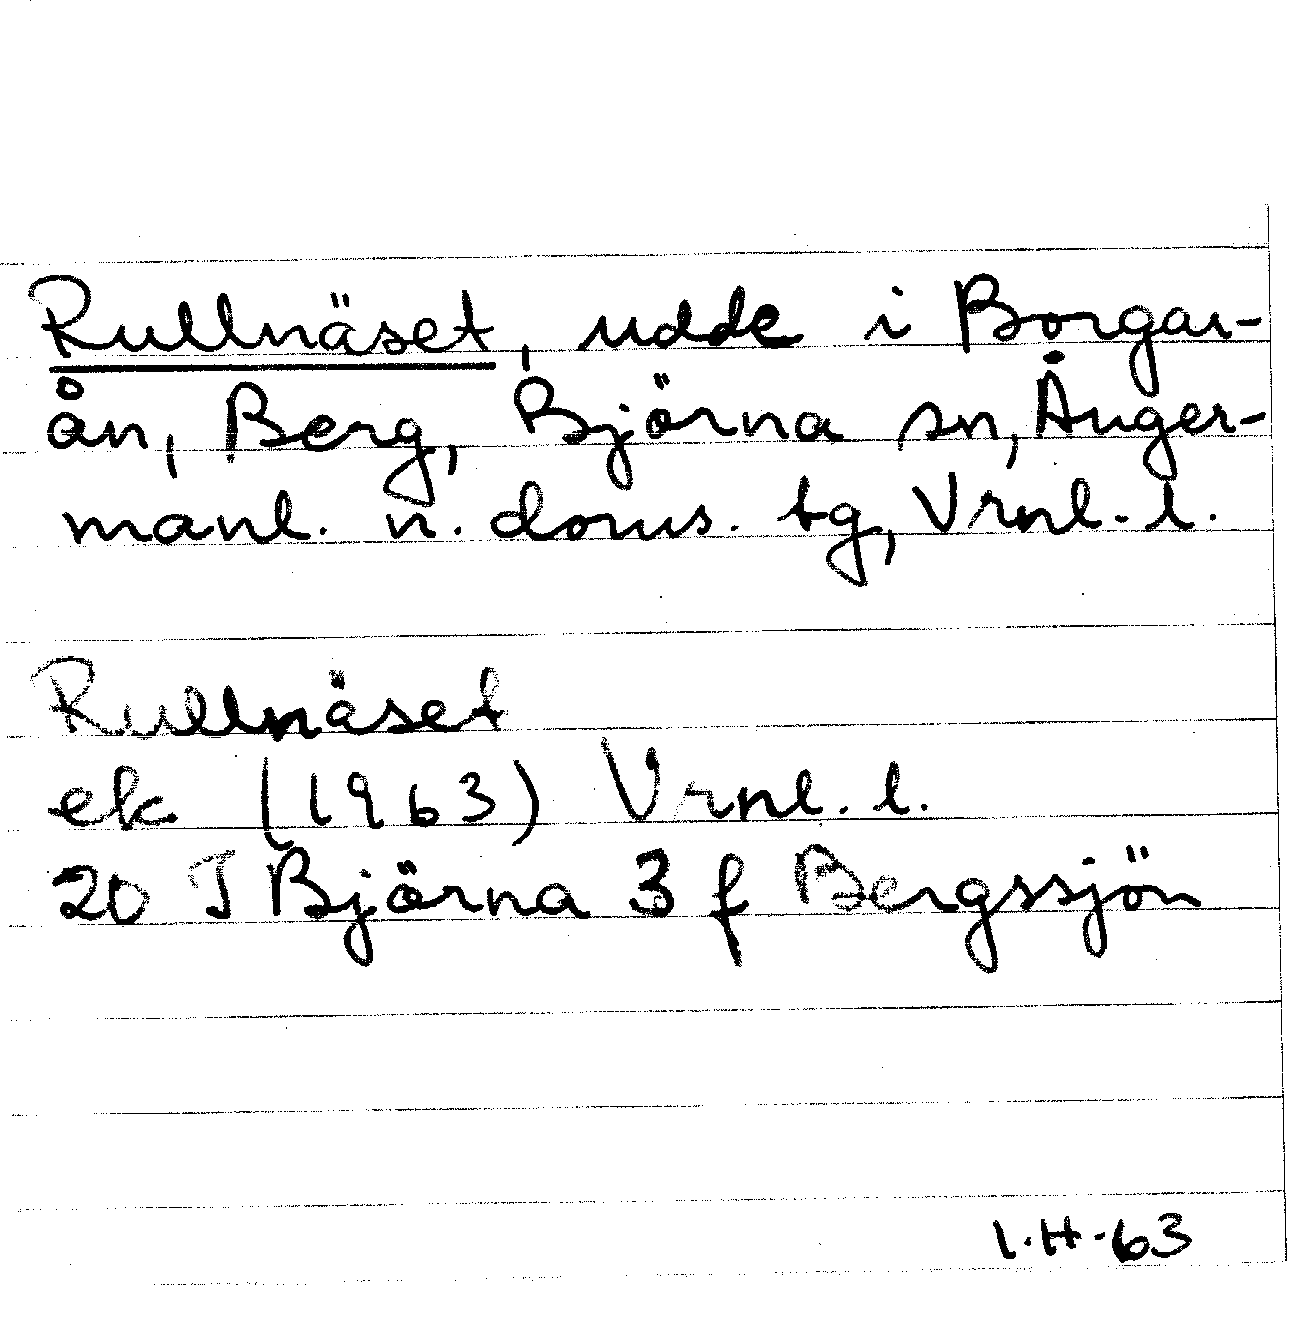 Rullnäset, udde i Borgar-
ån, Berg, Björna sn, Ånger-
manl. n. doms. tg, Vrnl. l.
Rullnäset
ek. (1963) Vrnl. l.
20 J Björna 3 f Bergssjön
I.H-63